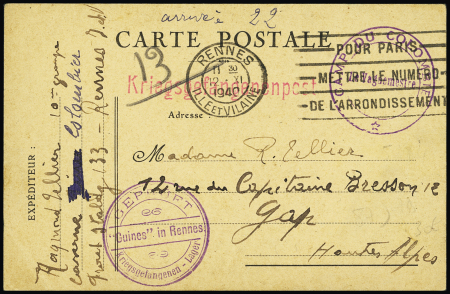 arrivée 22
CARTE POSTALE
13
RENNES
11 30
12 XI
1940
ILLE ET VILAINE
POUR PARIS
METTRE LE NUMERO
DE L'ARRONDISSEMENT
CAMP DU COLOMBIER
Kriegsgefangenenpost
Adresse
Madame R. Tellier
12 rue du Capitaine Bresson 12
Gap
Hautes Alpes
GEPRÜFT
"Guines" in Rennes
Kriegsgefangenen-Lager
EXPÉDITEUR :
Raymond Tellier 10e groupe
caserne Colombier
Front Stalag 133 - Rennes